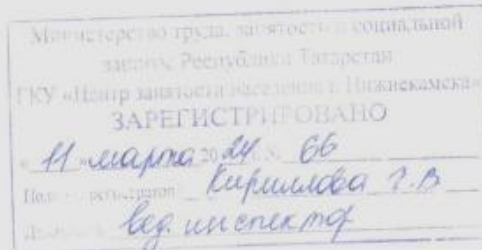 Министерство труда, занятости и социальной
защиты Республики Татарстан
ГКУ «Центр занятости населения г. Нижнекамска»
ЗАРЕГИСТРИРОВАНО
« 11 » марта 2024 г. № 66
Кириллова Г.В
вед. инспектор